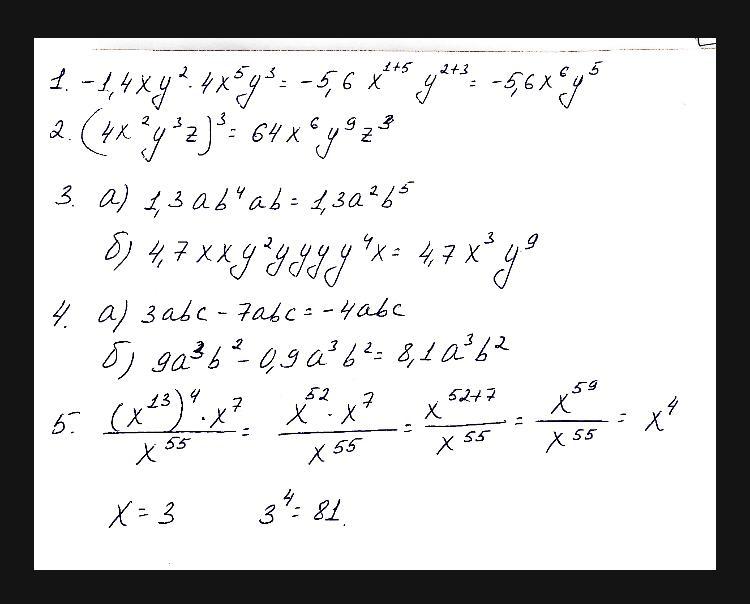 1. -1,4xy²·4x⁵y³= -5,6 x¹⁺⁵ y²⁺³= -5,6x⁶y⁵
2. (4x²y³z)³= 64x⁶y⁹z³
3. а) 1,3ab⁴ab= 1,3a²b⁵
б) 4,7xxy²yyyy⁴x= 4,7x³y⁹
4. а) 3abc - 7abc= -4abc
б) 9a³b² - 0,9a³b²= 8,1a³b²
5. (x¹³)⁴·x⁷/x⁵⁵ = x⁵²·x⁷/x⁵⁵ = x⁵²⁺⁷/x⁵⁵ = x⁵⁹/x⁵⁵ = x⁴
x=3 3⁴= 81.